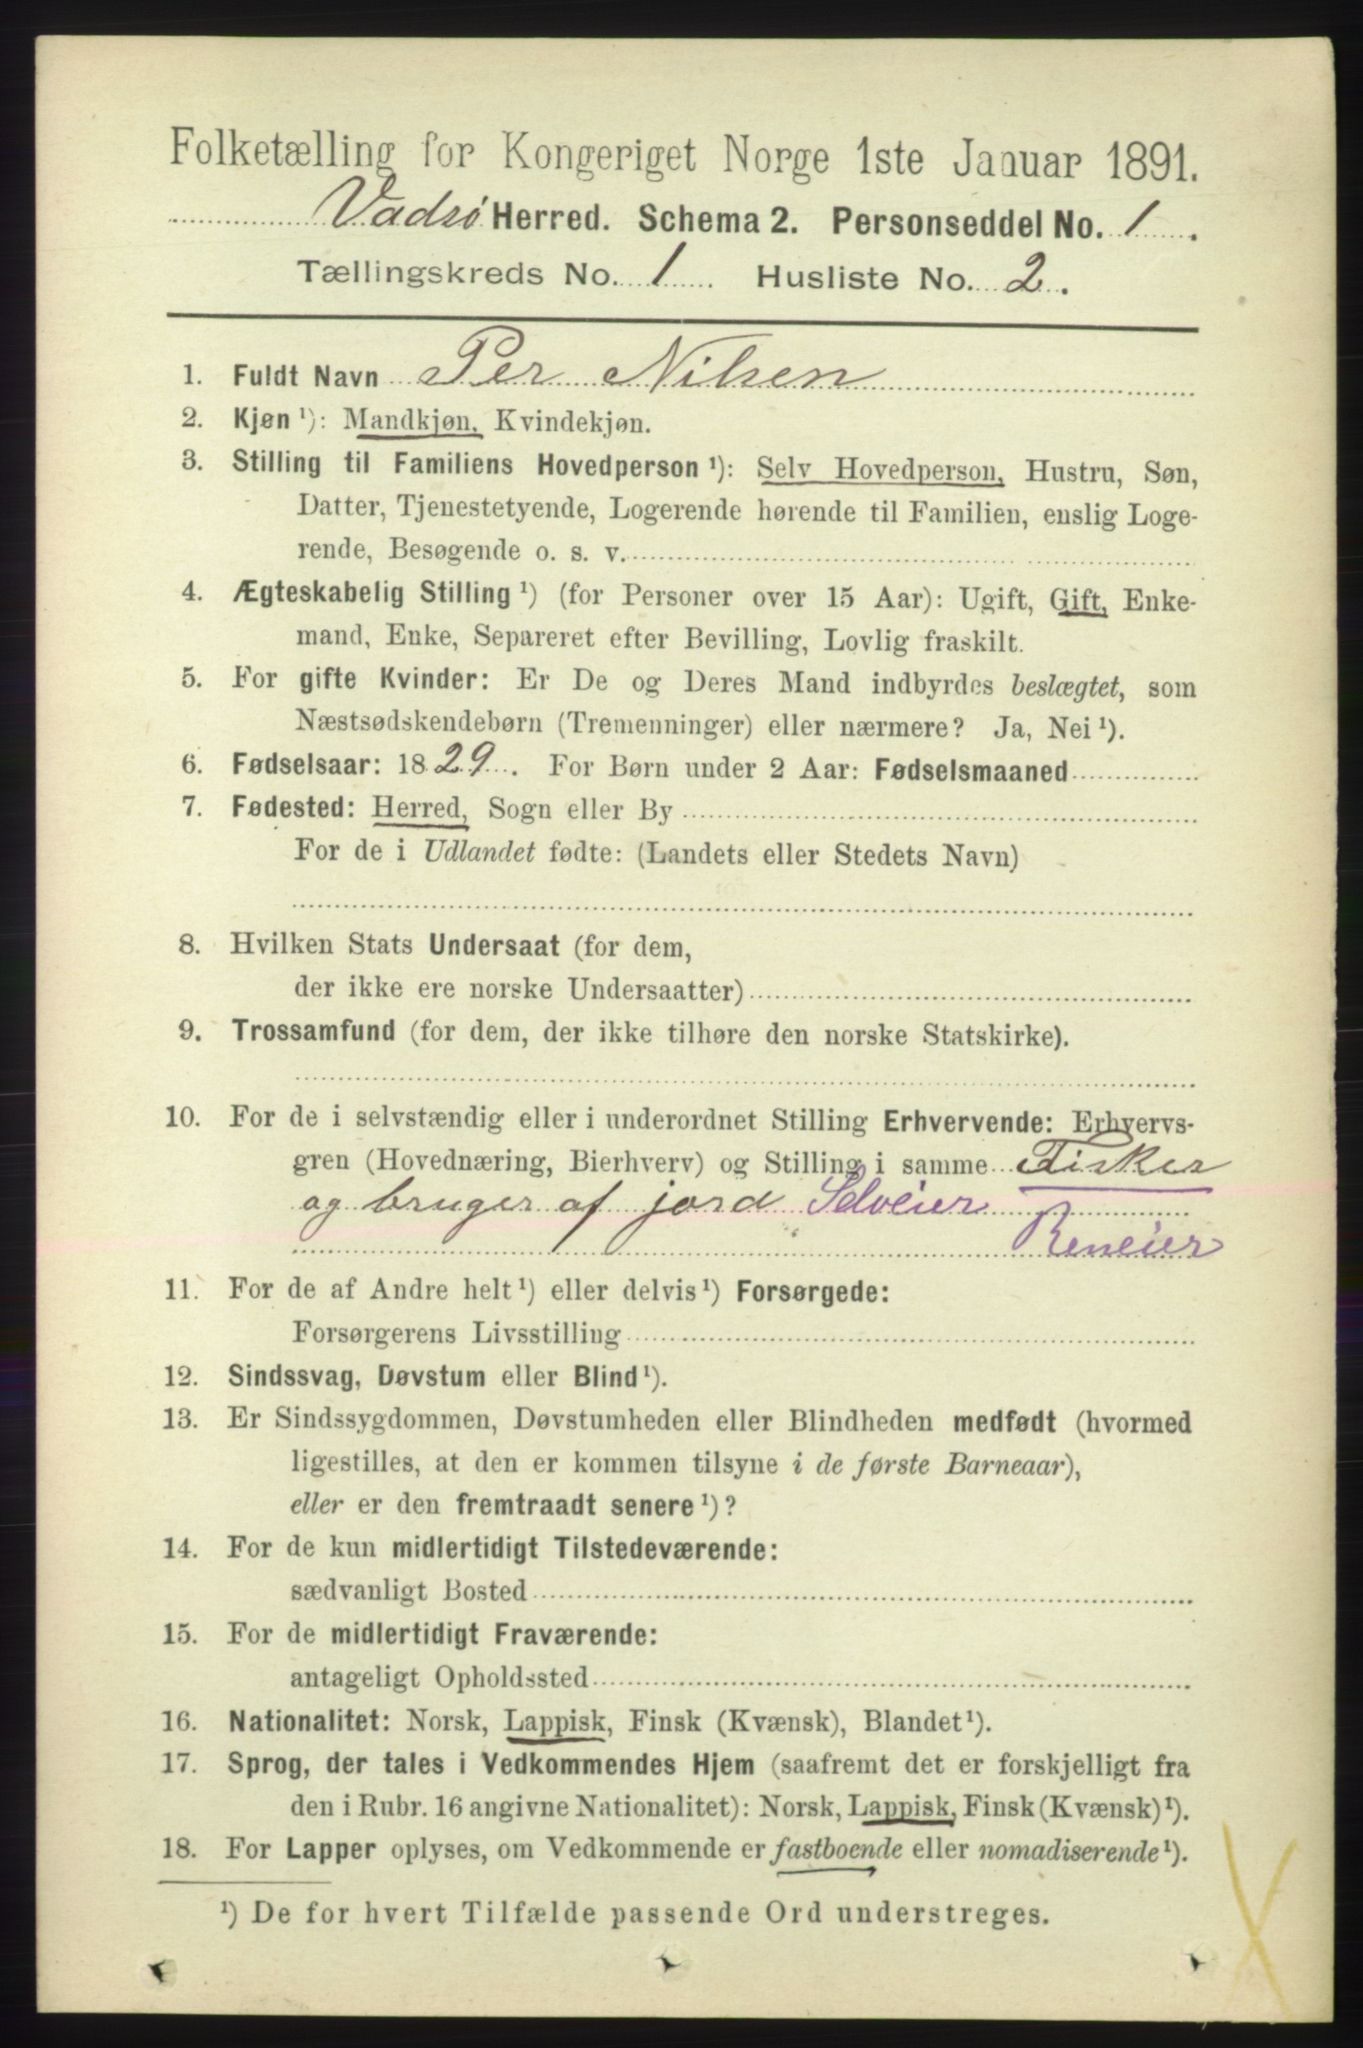 Folketælling for Kongeriget Norge 1ste Januar 1891.
Vadsø Herred. Schema 2. Personseddel No. 1.
Tællingskreds No. 1 Husliste No. 2.
1. Fuldt Navn Per Nilsen
2. Kjøn ¹): Mandkjøn, Kvindekjøn.
3. Stilling til Familiens Hovedperson ¹): Selv Hovedperson, Hustru, Søn,
Datter, Tjenestetyende, Logerende hørende til Familien, enslig Loge-
rende, Besøgende o. s. v.
4. Ægteskabelig Stilling ¹) (for Personer over 15 Aar): Ugift, Gift, Enke-
mand, Enke, Separeret efter Bevilling, Lovlig fraskilt.
5. For gifte Kvinder: Er De og Deres Mand indbyrdes beslægtet, som
Næstsødskendebørn (Tremenninger) eller nærmere? Ja, Nei ¹).
6. Fødselsaar: 1829. For Børn under 2 Aar: Fødselsmaaned
7. Fødested: Herred, Sogn eller By
For de i Udlandet fødte: (Landets eller Stedets Navn)
8. Hvilken Stats Undersaat (for dem,
der ikke ere norske Undersaatter)
9. Trossamfund (for dem, der ikke tilhøre den norske Statskirke).
10. For de i selvstændig eller i underordnet Stilling Erhvervende: Erhvervs-
gren (Hovednæring, Bierhverv) og Stilling i samme Fisker
og bruger af jord Selveier
Reneier
11. For de af Andre helt ¹) eller delvis ¹) Forsørgede:
Forsørgerens Livsstilling
12. Sindssvag, Døvstum eller Blind ¹).
13. Er Sindssygdommen, Døvstumheden eller Blindheden medfødt (hvormed
ligestilles, at den er kommen tilsyne i de første Barneaar),
eller er den fremtraadt senere ¹)?
14. For de kun midlertidigt Tilstedeværende:
sædvanligt Bosted
15. For de midlertidigt Fraværende:
antageligt Opholdssted
16. Nationalitet: Norsk, Lappisk, Finsk (Kvænsk), Blandet ¹).
17. Sprog, der tales i Vedkommendes Hjem (saafremt det er forskjelligt fra
den i Rubr. 16 angivne Nationalitet): Norsk, Lappisk, Finsk (Kvænsk) ¹).
18. For Lapper oplyses, om Vedkommende er fastboende eller nomadiserende ¹).
¹) De for hvert Tilfælde passende Ord understreges.